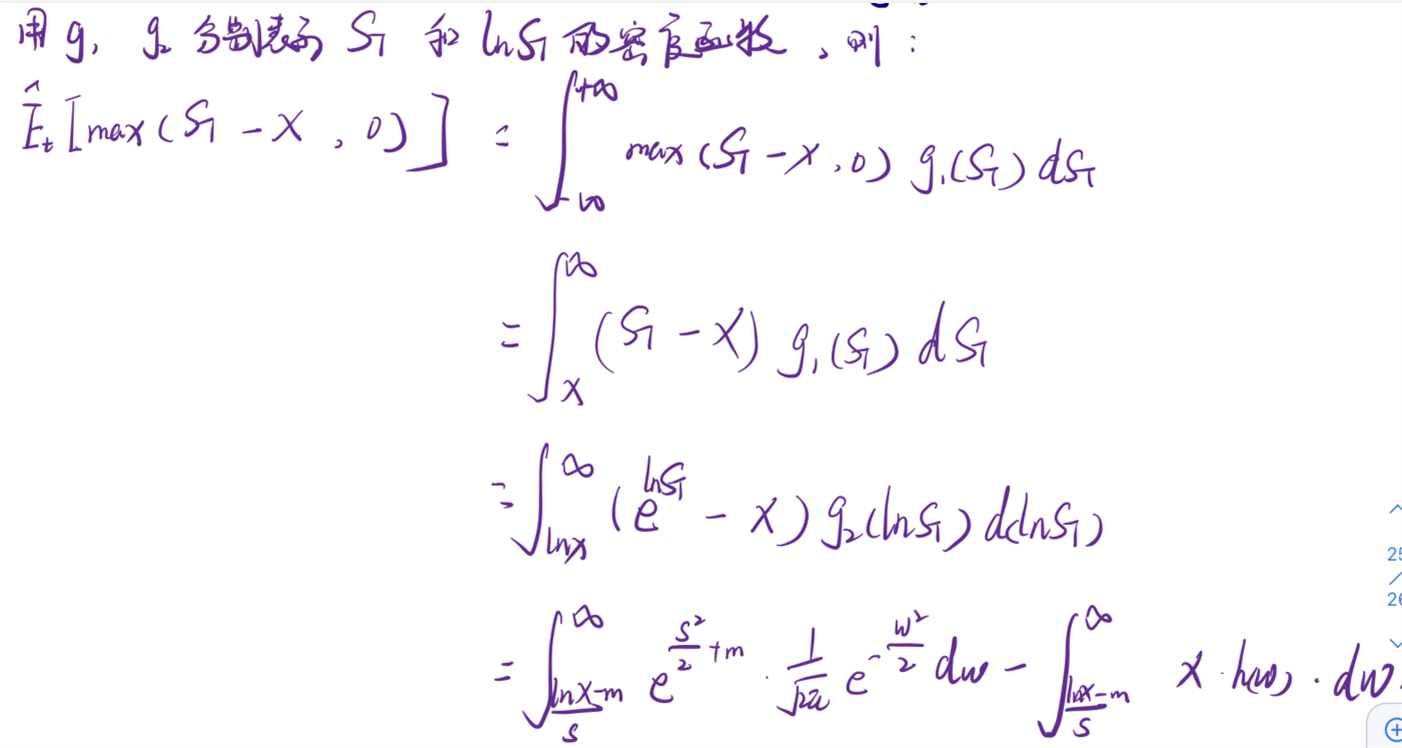 用 g₁ g₂ 分别表示 S_T 和 lnS_T 的密度函数，则：
Ê_t [max(S_T - X, 0)] = ∫_{-∞}^{+∞} max(S_T - X, 0) g₁(S_T) dS_T
= ∫_X^∞ (S_T - X) g₁(S_T) dS_T
= ∫_{lnX}^∞ (e^{lnS_T} - X) g₂(lnS_T) d(lnS_T)
= ∫_{(lnX-m)/s}^∞ e^{s²/2 + m} · 1/√2π e^{-w²/2} dw - ∫_{(lnX-m)/s}^∞ X · h(w) · dw
25
26